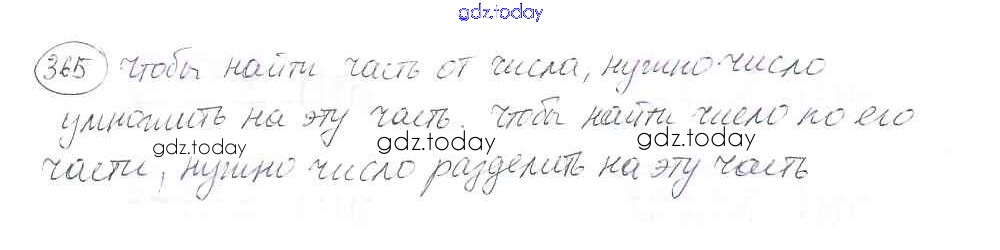 gdz.today
365 Чтобы найти часть от числа, нужно число
умножить на эту часть. Чтобы найти число по его
gdz.today gdz.today
части, нужно число разделить на эту часть
gdz.today gdz.today